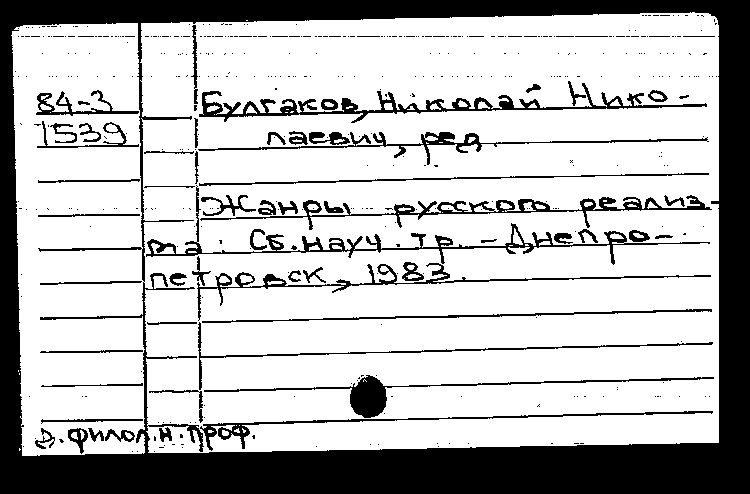 84-3 Булгаков, Николай Нико-
1539 лаевич, ред.
Жанры русского реализ-
ма: Сб. науч. тр. - Днепро-
петровск, 1983.
д. филол. н. проф.